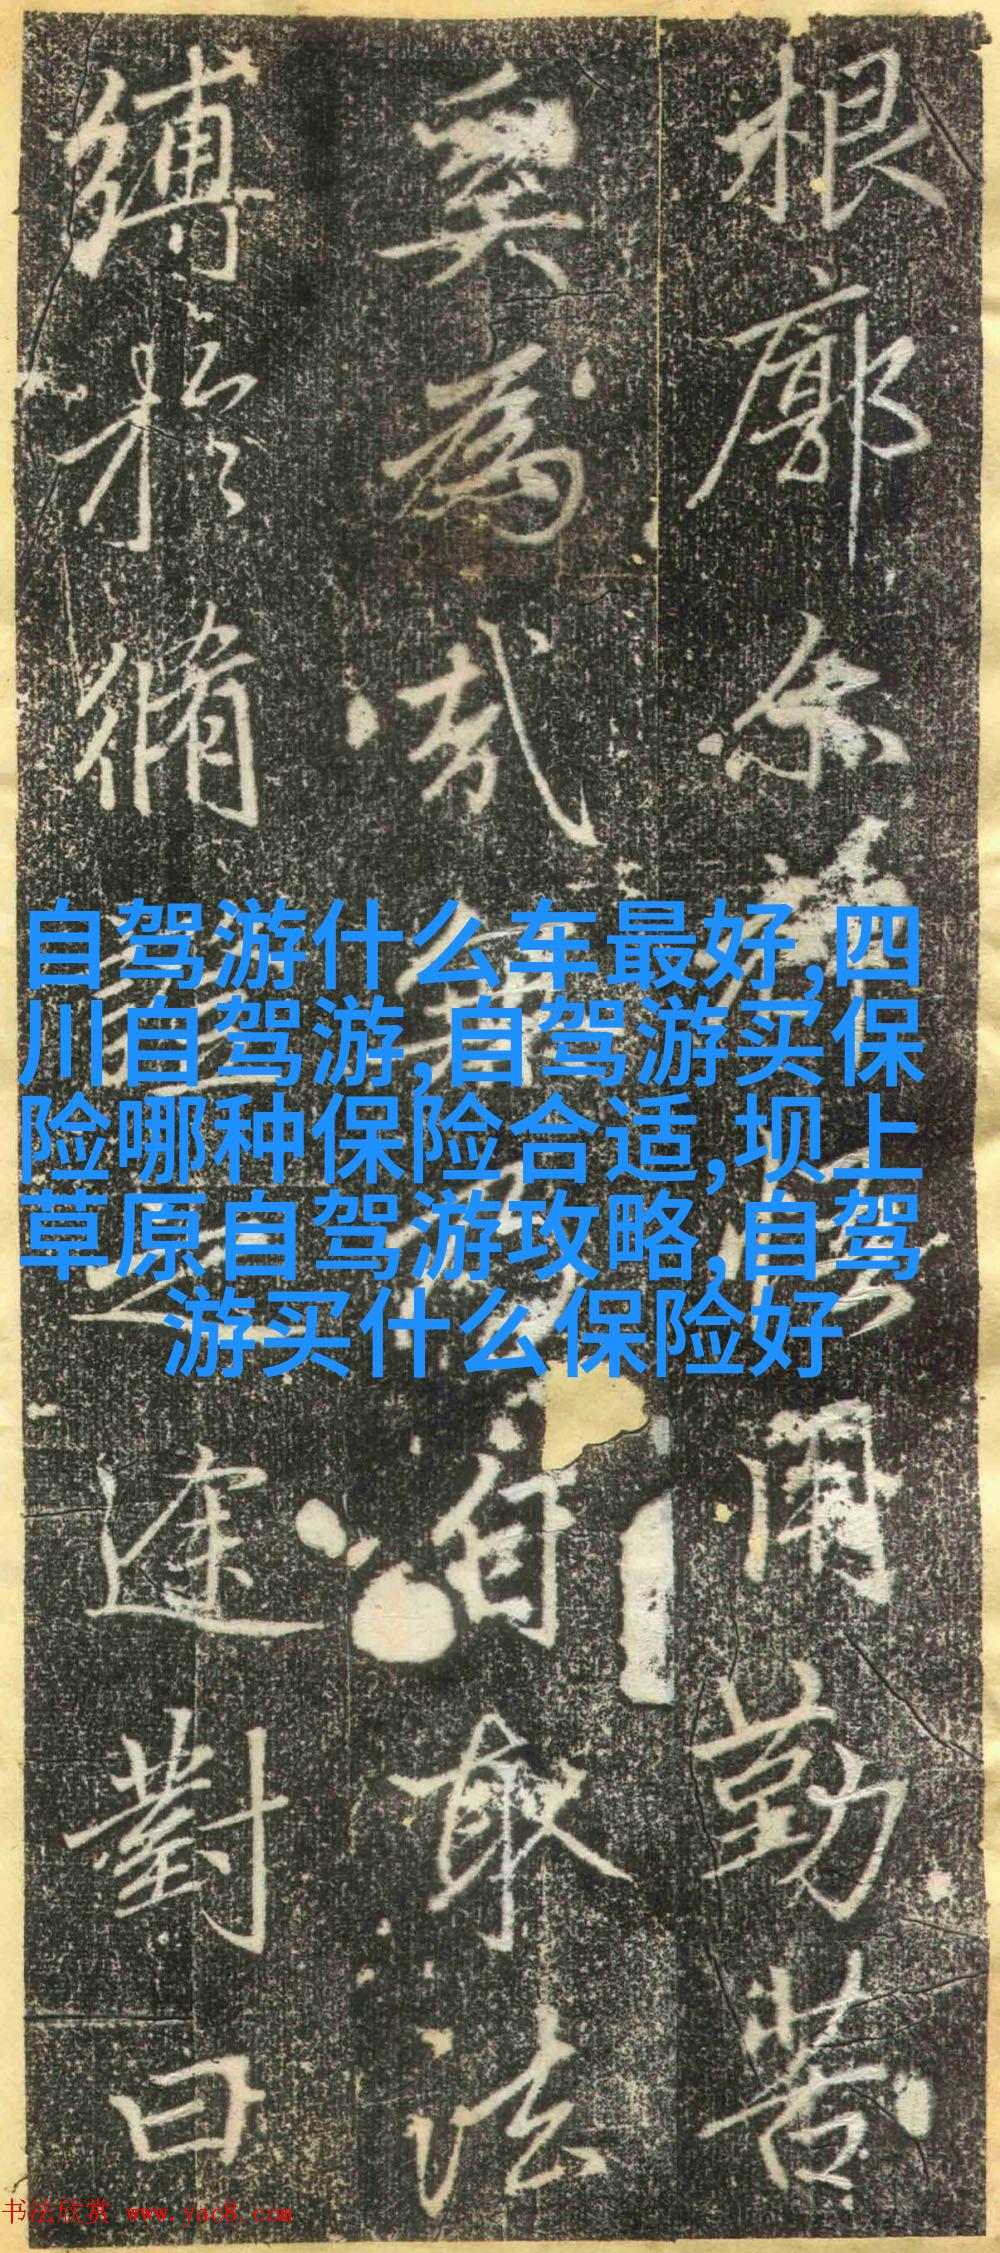 根廓尔
用勤苦
奚為哉
自取法
縛於脩
途對曰
自驾游什么车最好,四
川自驾游,自驾游买保
险哪种保险合适,坝上
草原自驾游攻略,自驾
游买什么保险好
书法欣赏 www.yac8.com